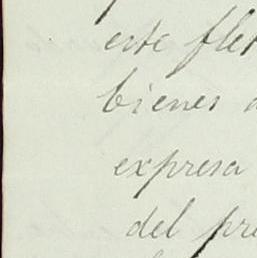 este flet
bienes a
expresa
del pre